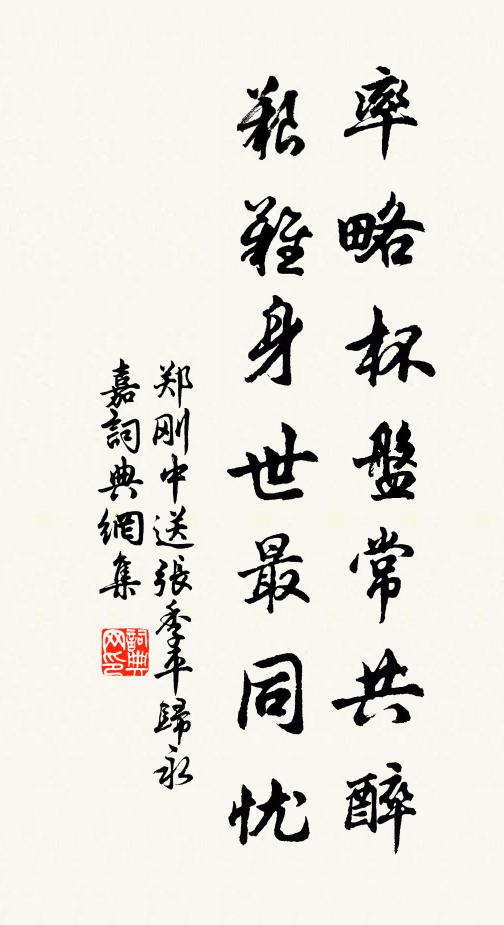 率略杯盤常共醉
艱難身世最同忧
郑刚中送張季平歸永
嘉詞典網集
詞典网印